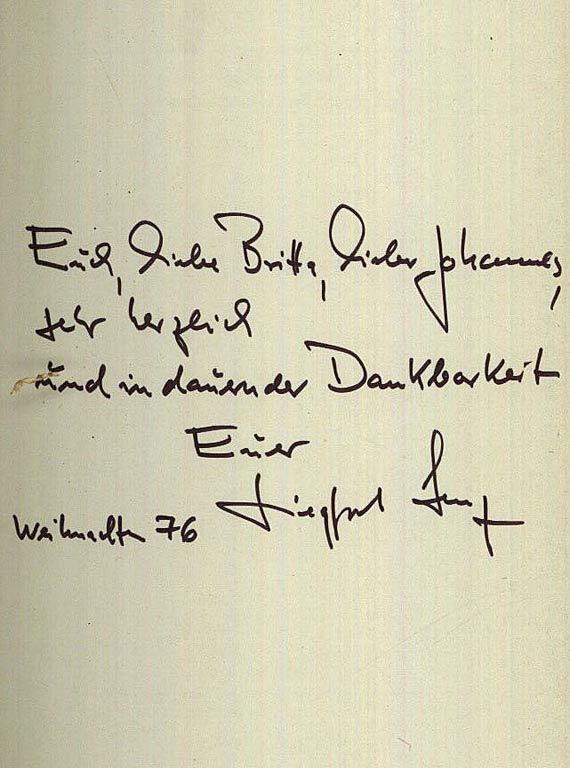 Euch, liebe Britta, lieber Johannes,
sehr herzlich
und in dauernder Dankbarkeit
Euer
Siegfried Lenz
Weihnachten 76